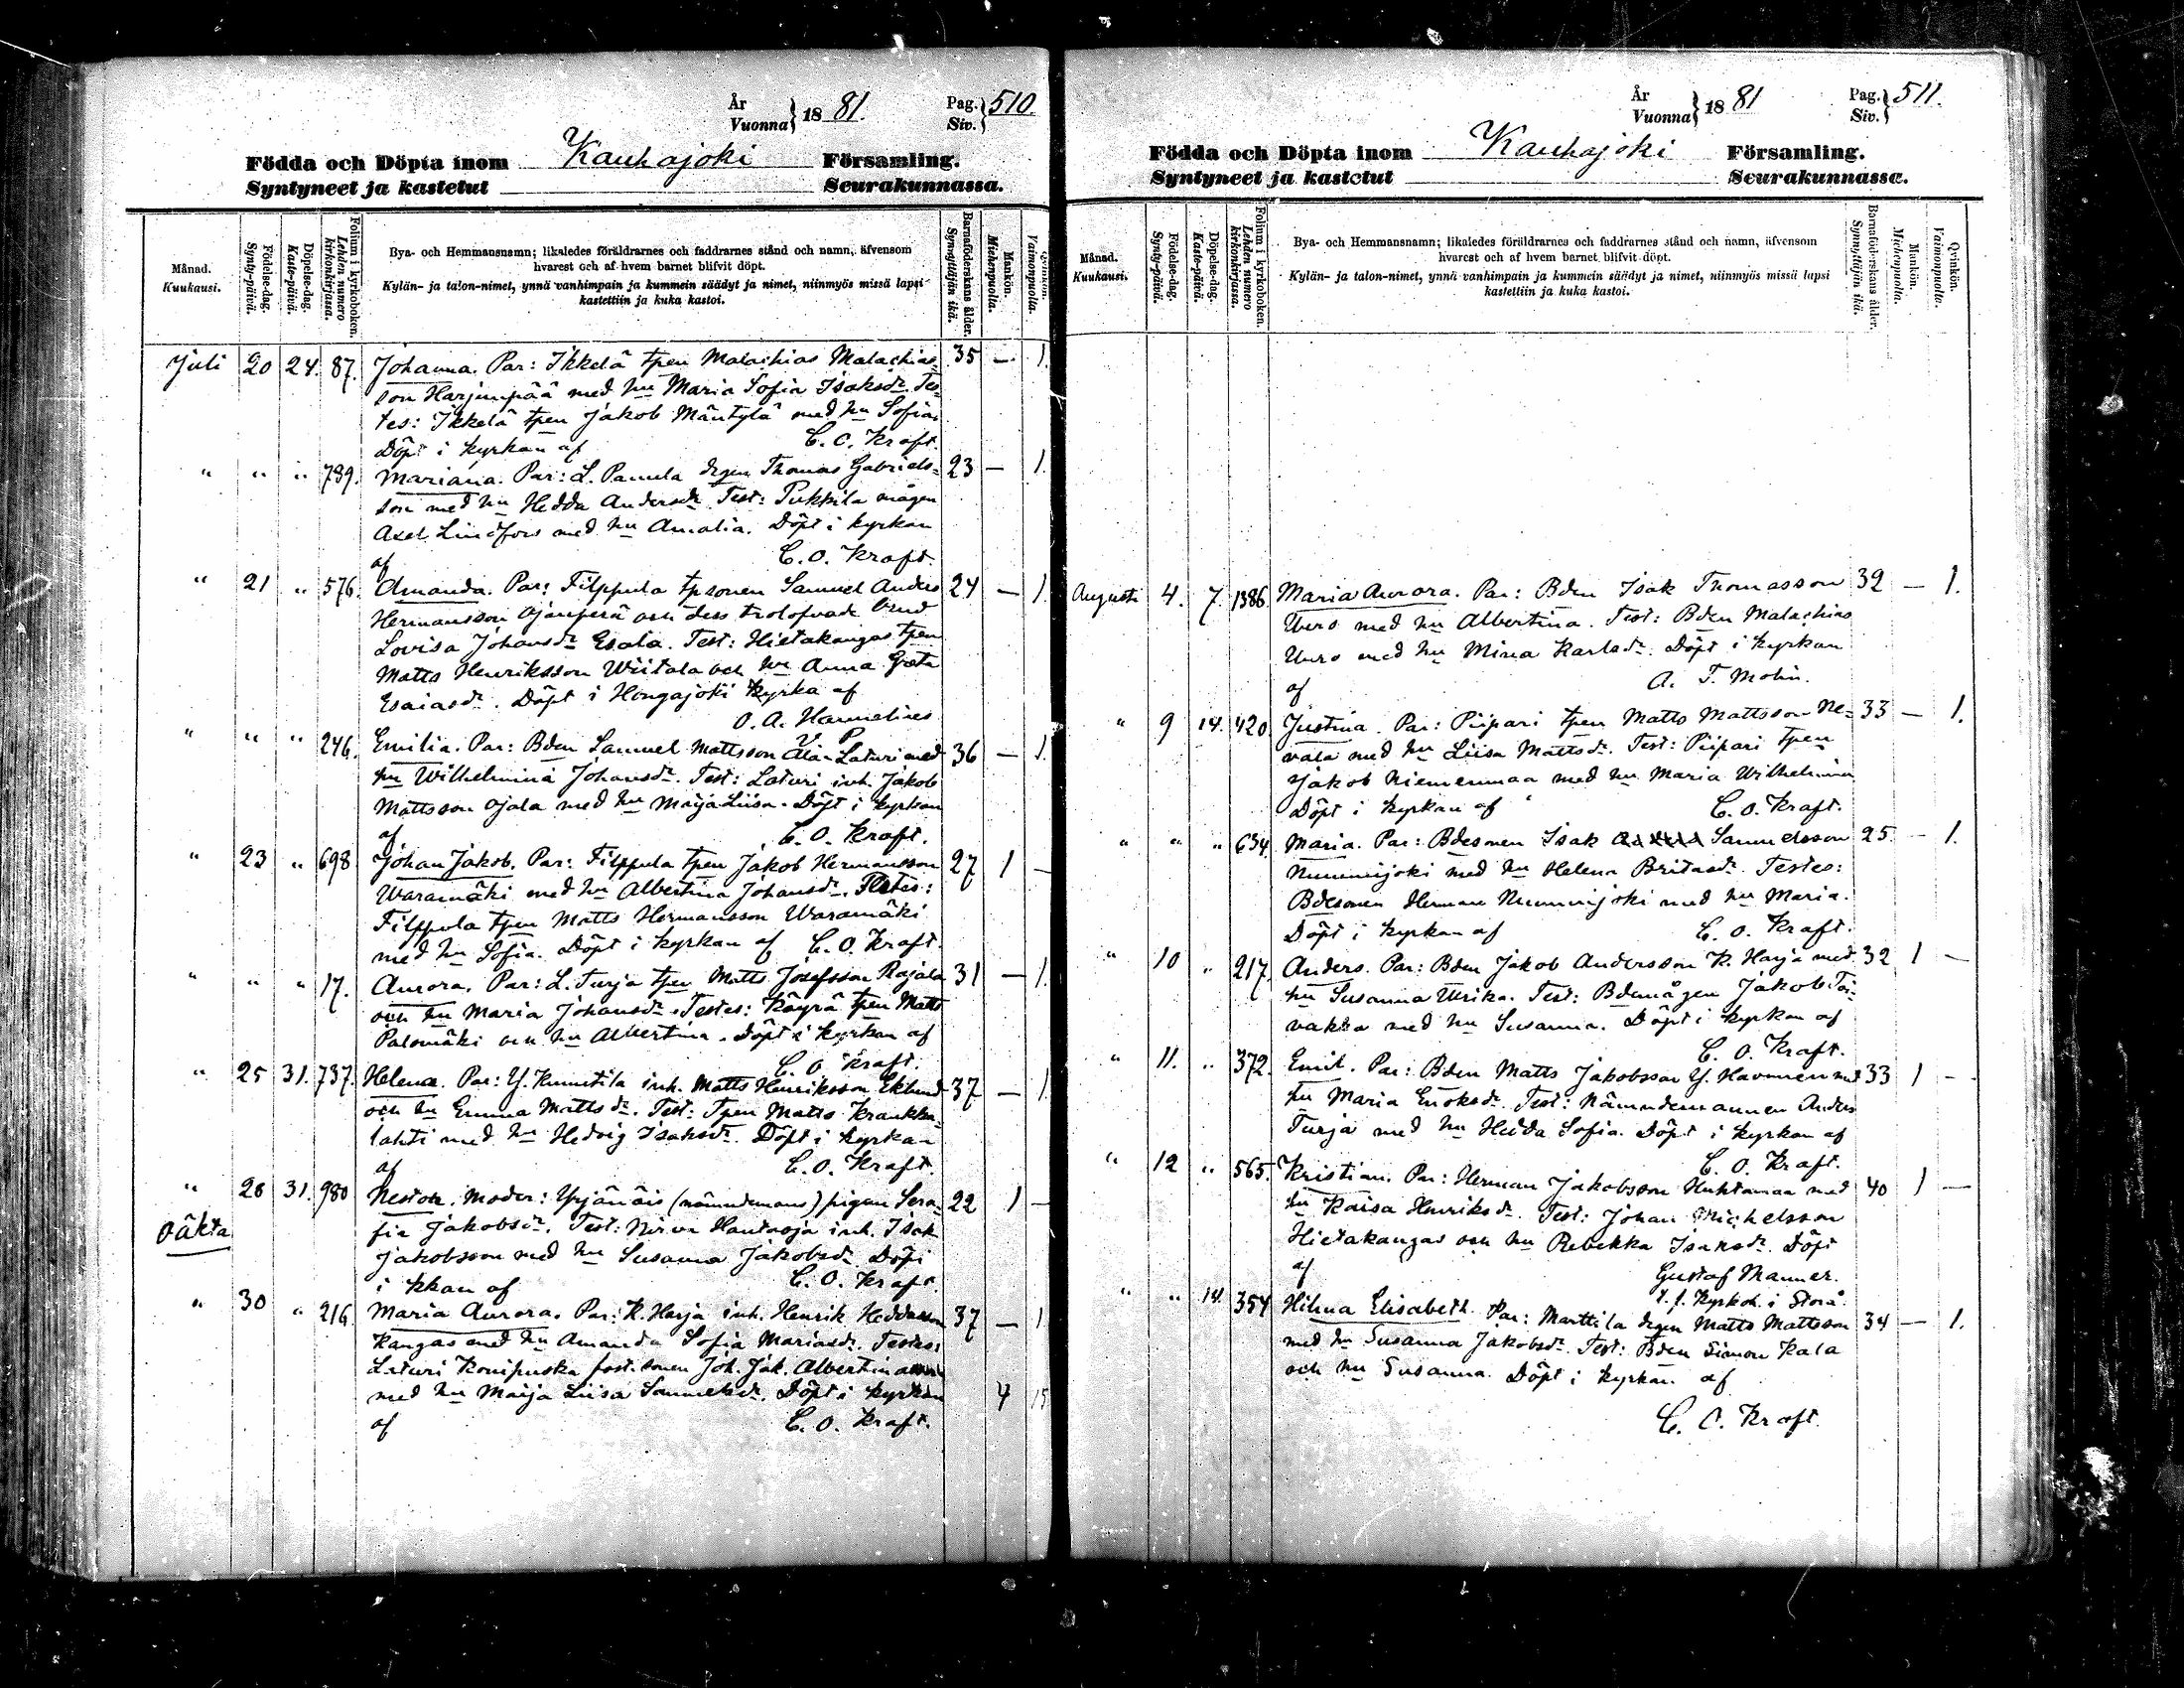 År
Vuonna } 1881.
Pag.
Siv. } 510.
Födda och Döpta inom Kauhajoki Församling.
Syntyneet ja kastetut Seurakunnassa.
Månad.
Kuukausi.
Födelse-dag.
Synty-päivä.
Döpelse-dag.
Kaste-päivä.
Folium i kyrkoboken.
Lehden numero
kirkonkirjassa.
Bya- och Hemmansnamn; likaledes föräldrarnes och faddrarnes stånd och namn, äfvensom
hvarest och af hvem barnet blifvit döpt.
Kylän- ja talon-nimet, ynnä vanhimpain ja kummein säädyt ja nimet, niinmyös missä lapsi
kastettiin ja kuka kastoi.
Barnaföderskans ålder.
Synnyttäjän ikä.
Mankön.
Miehenpuolta.
Qvinkön.
Vaimonpuolta.
Juli 20 24. 87. Johanna. Par: Ikkelä tpen Malachias Malachias- 35 — 1.
son Harjunpää med hu Maria Sofia Isaksdr. Tes-
tes: Ikkelä tpen Jakob Mäntylä med hu Sofia.
Döpt i kyrkan af C. O. Kraft.
" " " 789. Mariana. Par: L. Panula drgen Thomas Gabriels- 23 — 1.
son med hu Hedda Andersdr. Test: Pukkila mågen
Axel Lindfors med hu Amalia. Döpt i kyrkan
af C. O. Kraft.
" 21 " 576. Amanda. Par: Filppula tpsonen Samuel Anders 24 — 1.
Hermansson Ojanperä och dess trolofvade brud
Lovisa Johansdr Esala. Test: Hietakangas tpen
Matts Henriksson Wiitala och hu Anna Greta
Esaiasdr. Döpt i Hongajoki kyrka af
O. A. Hannelius
V. P.
" " " 246. Emilia. Par: Bden Samuel Mattsson Ala-Laturi med 36 — 1.
hu Wilhelmina Johansdr. Test: Laturi inh. Jakob
Mattsson Ojala med hu Maija Liisa. Döpt i kyrkan
af C. O. Kraft.
" 23 " 698 Johan Jakob. Par: Filppula tpen Jakob Hermansson 27 1 —
Waramäki med hu Albertina Johansdr. Testes:
Filppula tpen Matts Hermansson Waramäki
med hu Sofia. Döpt i kyrkan af C. O. Kraft.
" " " 17. Aurora. Par: L. Turja tpen Matts Josefsson Rajala 31 — 1.
och hu Maria Johansdr. Testes: Käyrä tpen Matts
Palomäki och hu Albertina. Döpt i kyrkan af
C. O. Kraft.
" 25 31. 737. Helena. Par: Y. Knuutila inh. Matts Henriksson Eklund 37 — 1
och hu Emma Mattsdr. Test: Tpen Matts Kraukka-
lahti med hu Hedvig Isaksdr. Döpt i kyrkan
af C. O. Kraft.
" 26 31. 980 Nestor. Moder: Yrjänäis (nämndemans) pigan Sera- 22 1 —
Oäkta fia Jakobsdr. Test: Nirva Hautaoja inh. Isak
Jakobsson med hu Susanna Jakobsdr. Döpt
i kkan af C. O. Kraft.
" 30 " 216. Maria Aurora. Par: K. Harja inh. Henrik Heddasson 37 — 1
Kangas med hu Amanda Sofia Mariasdr. Testes:
Laturi Konipuska fost. sonen Joh. Jak. Albertinasson
med hu Maija Liisa Samuelsdr. Döpt i kyrkan 4 15
af C. O. Kraft.
År
Vuonna } 1881
Pag.
Siv. } 511.
Födda och Döpta inom Kauhajoki Församling.
Syntyneet ja kastetut Seurakunnassa.
Månad.
Kuukausi.
Födelse-dag.
Synty-päivä.
Döpelse-dag.
Kaste-päivä.
Folium i kyrkoboken.
Lehden numero
kirkonkirjassa.
Bya- och Hemmansnamn; likaledes föräldrarnes och faddrarnes stånd och namn, äfvensom
hvarest och af hvem barnet blifvit döpt.
Kylän- ja talon-nimet, ynnä vanhimpain ja kummein säädyt ja nimet, niinmyös missä lapsi
kastettiin ja kuka kastoi.
Barnaföderskans ålder.
Synnyttäjän ikä.
Mankön.
Miehenpuolta.
Qvinkön.
Vaimonpuolta.
Augusti 4. 7. 1386 Maria Aurora. Par: Bden Isak Thomasson 32 — 1.
Uuro med hu Albertina. Test: Bden Malachias
Uuro med hu Mina Karlsdr. Döpt i kyrkan
af A. F. Molin.
" 9 14. 420 Justina. Par: Piipari tpen Matts Mattsson Ne- 33 — 1.
vala med hu Liisa Mattsdr. Test: Piipari tpen
Jakob Niemenmaa med hu Maria Wilhelmina
Döpt i kyrkan af C. O. Kraft.
" " " 634. Maria. Par: Bdesonen Isak Samuelsson 25. — 1.
Nummijoki med hu Helena Britasdr. Testes:
Bdesonen Herman Nummijoki med hu Maria.
Döpt i kyrkan af C. O. Kraft.
" 10 " 217. Anders. Par: Bden Jakob Andersson K. Harja med 32 1 —
hu Susanna Ulrika. Test: Bdemågen Jakob Toi-
vakka med hu Susanna. Döpt i kyrkan af
C. O. Kraft.
" 11. " 372. Emil. Par: Bden Matts Jakobsson Y. Havunen med 33 1 —
hu Maria Enoksdr. Test: Nämndemannen Anders
Turja med hu Hedda Sofia. Döpt i kyrkan af
C. O. Kraft.
" 12 " 565. Kristian. Par: Herman Jakobsson Huhtamaa med 40 1 —
hu Kaisa Henriksdr. Test: Johan Michelsson
Hietakangas och hu Rebekka Isaksdr. Döpt
af Gustaf Manner.
t. f. Kyrkoh. i Storå.
" " 14. 354 Hilma Elisabeth. Par: Marttila drgen Matts Mattsson 34 — 1.
med hu Susanna Jakobsdr. Test: Bden Simon Kala
och hu Susanna. Döpt i kyrkan af
C. O. Kraft.